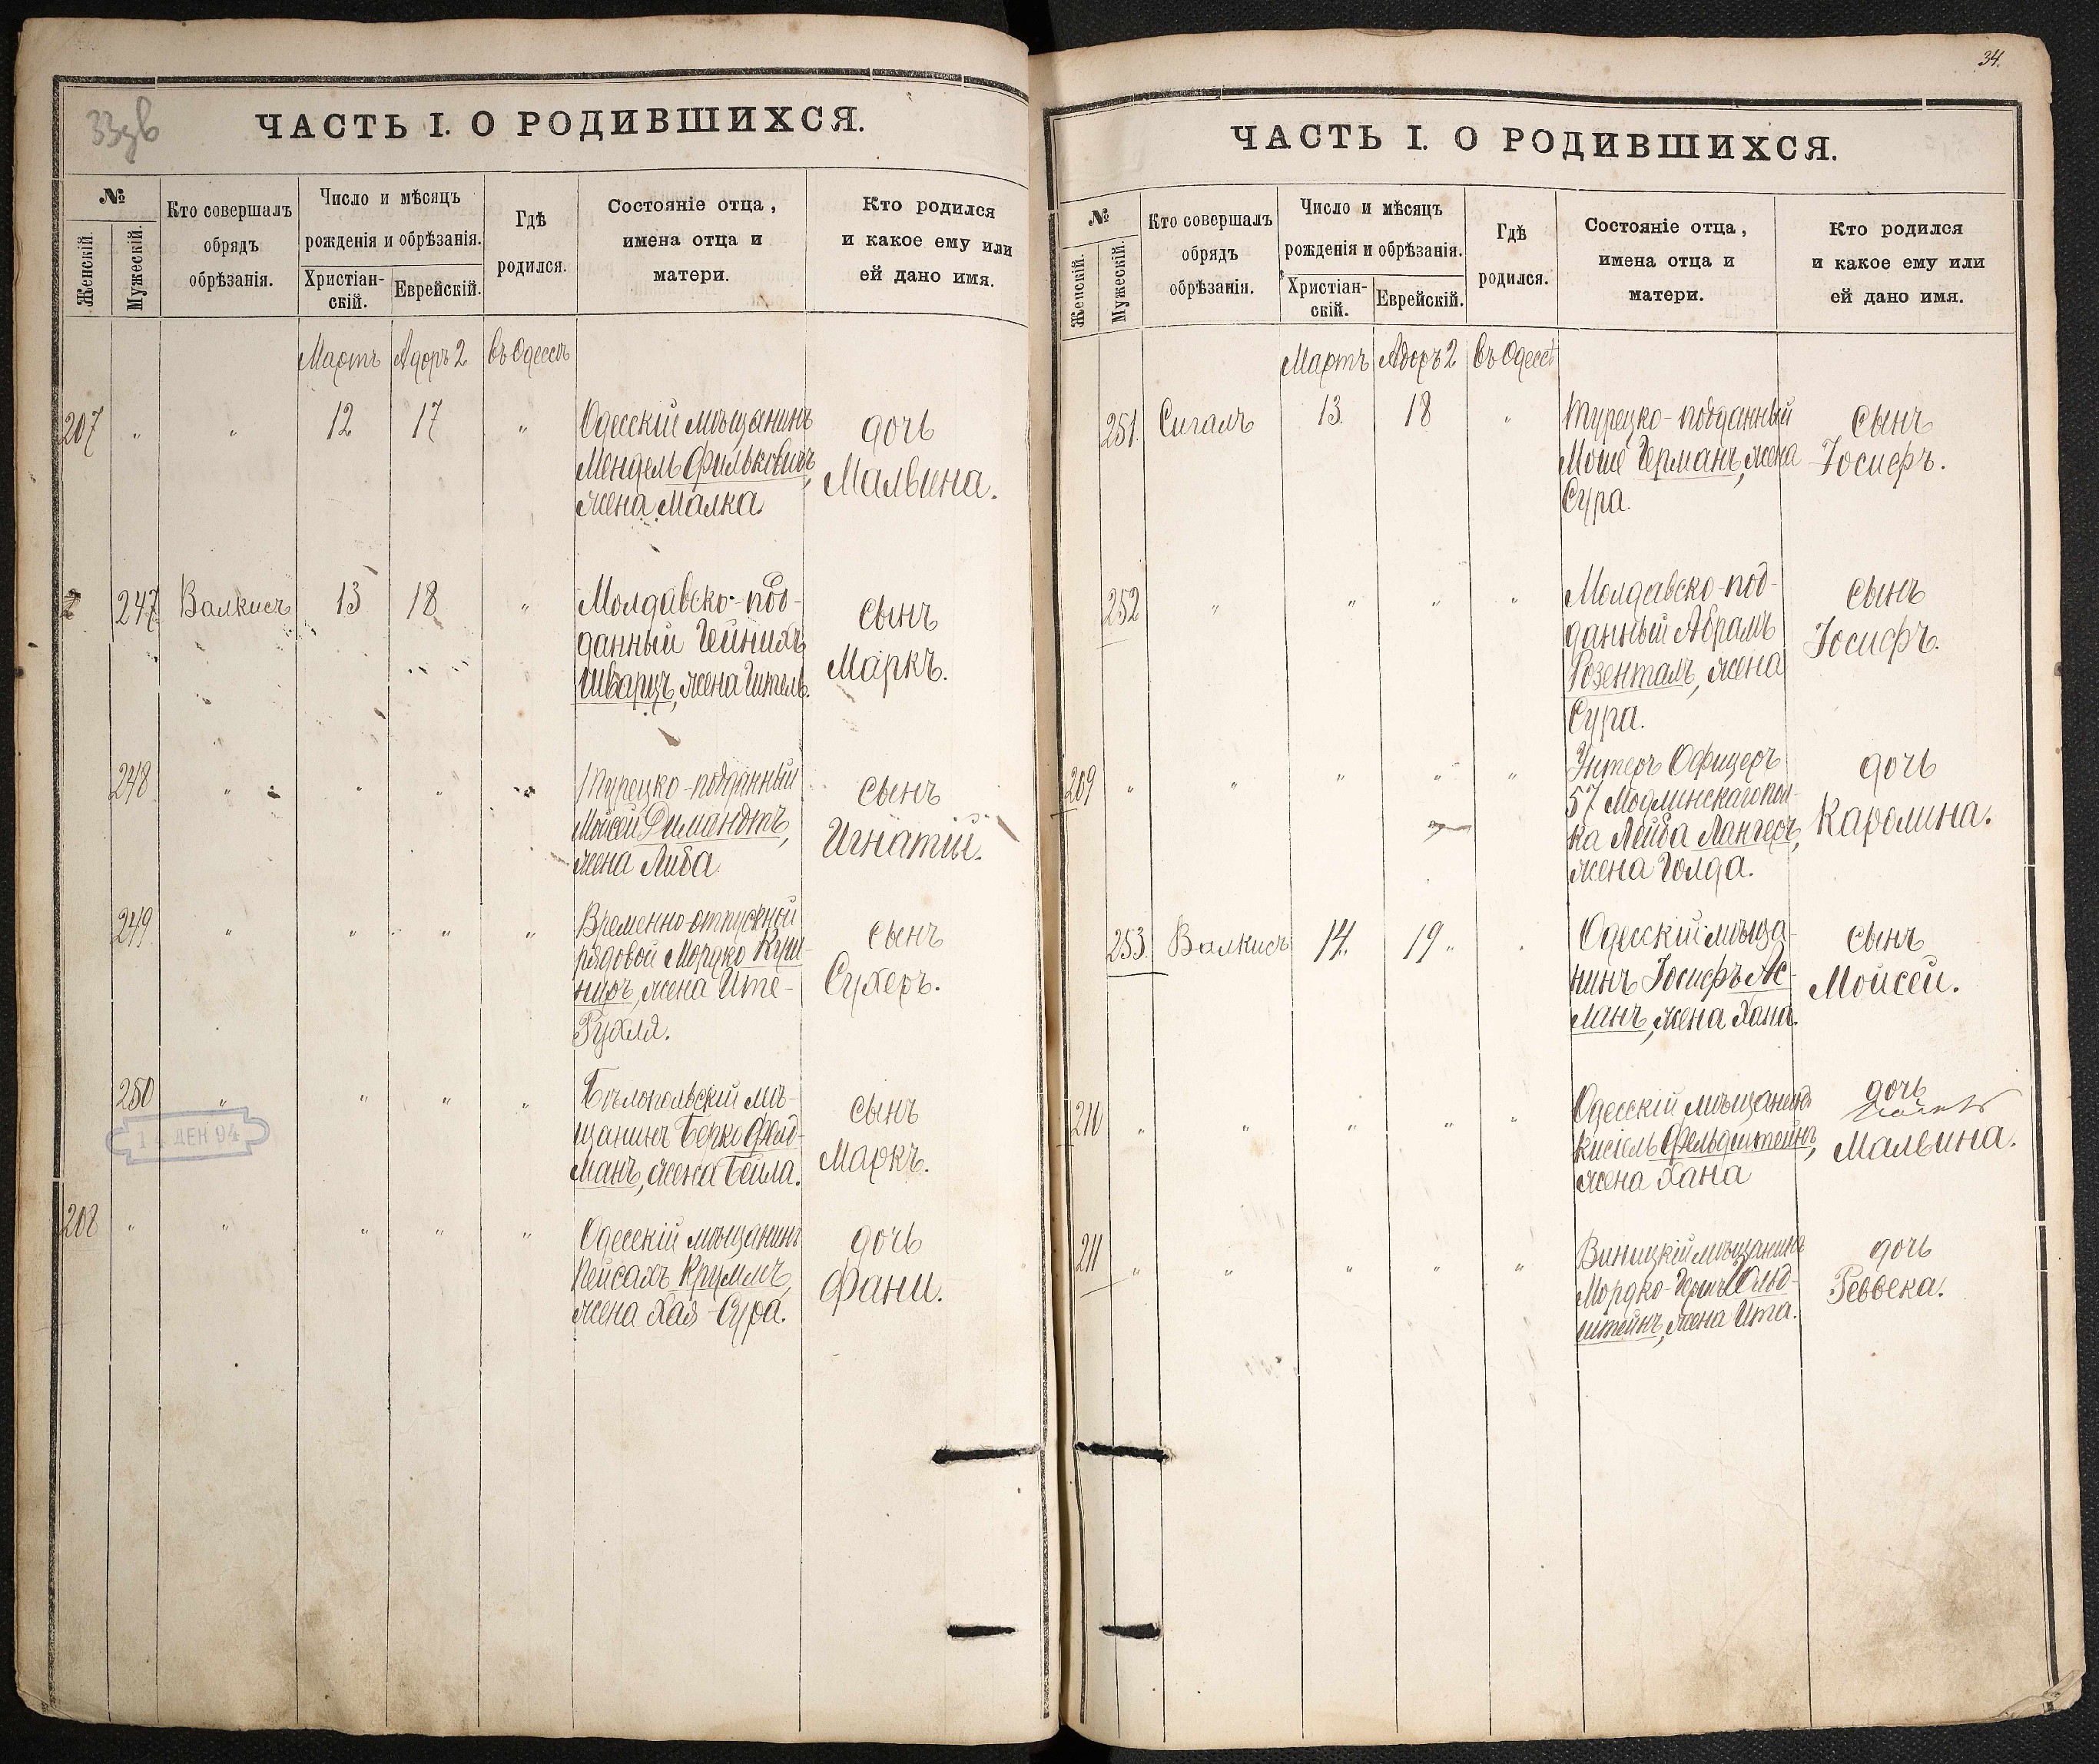 33зв
ЧАСТЬ I. О РОДИВШИХСЯ.
№
Женскій.
Мужескій.
Кто совершалъ
обрядъ
обрѣзанія.
Число и мѣсяцъ
рожденія и обрѣзанія.
Христіан-
скій.
Еврейскій.
Гдѣ
родился.
Состояніе отца,
имена отца и
матери.
Кто родился
и какое ему или
ей дано имя.
Мартъ Адоръ 2 въ Одессѣ
207 " " 12 17 " Одесскій мѣщанинъ дочь
Мендель Фильковичъ, Мальвина.
жена Малка.
247 Валкисъ 13 18 " Молдавско-под- сынъ
данный Гейнихъ Маркъ.
Шварцъ, жена Гитель.
248 " " " " Турецко-подданный сынъ
Мойсей Димандтъ, Игнатій.
жена Либа.
249 " " " " Временно-отпускной сынъ
рядовой Мордко Куш- Сухеръ.
ниръ, жена Ите-
Рухля.
250 " " " " Бѣлопольскій мѣ- сынъ
щанинъ Берко Фельд- Маркъ.
манъ, жена Бейла.
14 ДЕК 94
208 " " " " " Одесскій мѣщанинъ дочь
Пейсахъ Круммъ, Фани.
жена Хая-Сура.
34.
ЧАСТЬ I. О РОДИВШИХСЯ.
№
Женскій.
Мужескій.
Кто совершалъ
обрядъ
обрѣзанія.
Число и мѣсяцъ
рожденія и обрѣзанія.
Христіан-
скій.
Еврейскій.
Гдѣ
родился.
Состояніе отца,
имена отца и
матери.
Кто родился
и какое ему или
ей дано имя.
Мартъ Адоръ 2 въ Одессѣ
251. Сигалъ 13 18 " Турецко-подданный сынъ
Моше Германъ, жена Іосифъ.
Сура.
252 " " " " Молдавско-под- сынъ
данный Абрамъ Іосифъ.
Розенталь, жена
Сура.
209 " " " " " Унтеръ Офицеръ дочь
57 Модлинскаго пол- Каролина.
ка Лейба Лангеръ,
жена Голда.
253. Валкисъ 14. 19 " Одесскій мѣща- сынъ
нинъ Іосифъ Ас- Мойсей.
ланъ, жена Хана.
210 " " " " " Одесскій мѣщанинъ дочь
Кисель Фельдштейнъ, Мальвина.
жена Хана
211 " " " " " Виницкій мѣщанинъ дочь
Мордко-Гершъ Гольд- Реввека.
штейнъ, жена Ита.